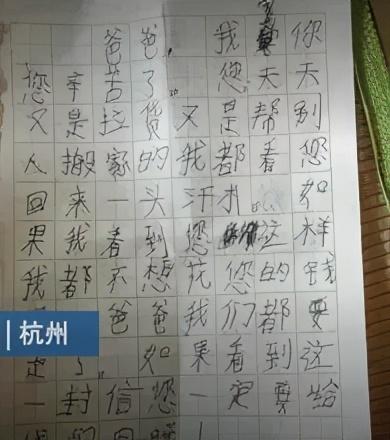 爸爸,我 你
您辛苦了。您天天
又是拉货又是帮别
人搬家的我都看您
回来一头汗 如
果我看到您 这样
我都不想花您的钱
爸爸我们都要
走了。如果看到这
一封信您一定要给
我们回
杭州